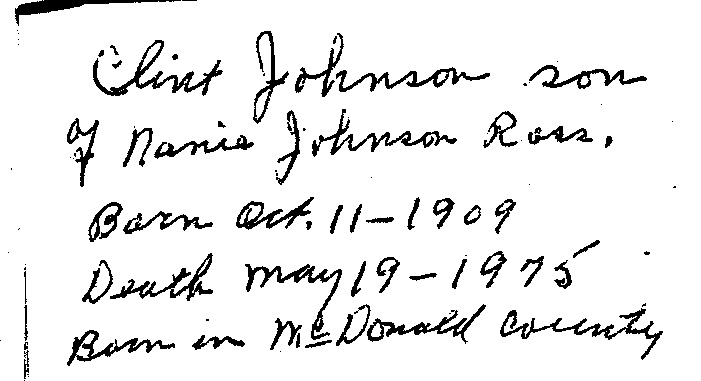 Clint Johnson son
of Nanie Johnson Ross.
Born Oct. 11-1909
Death May 19-1975
Born in McDonald County